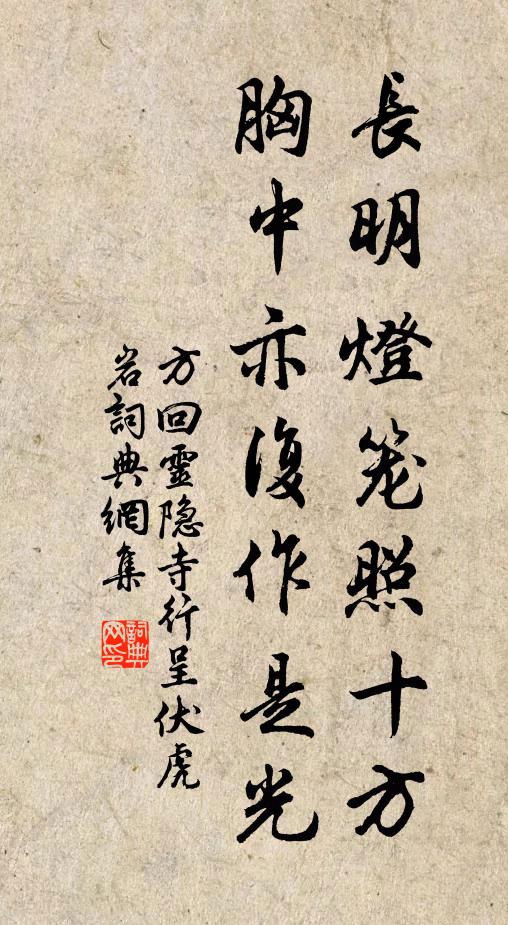 長明燈笼照十方
胸中亦復作是光
方回靈隐寺行呈伏虎
岩詞典網集
詞典网印